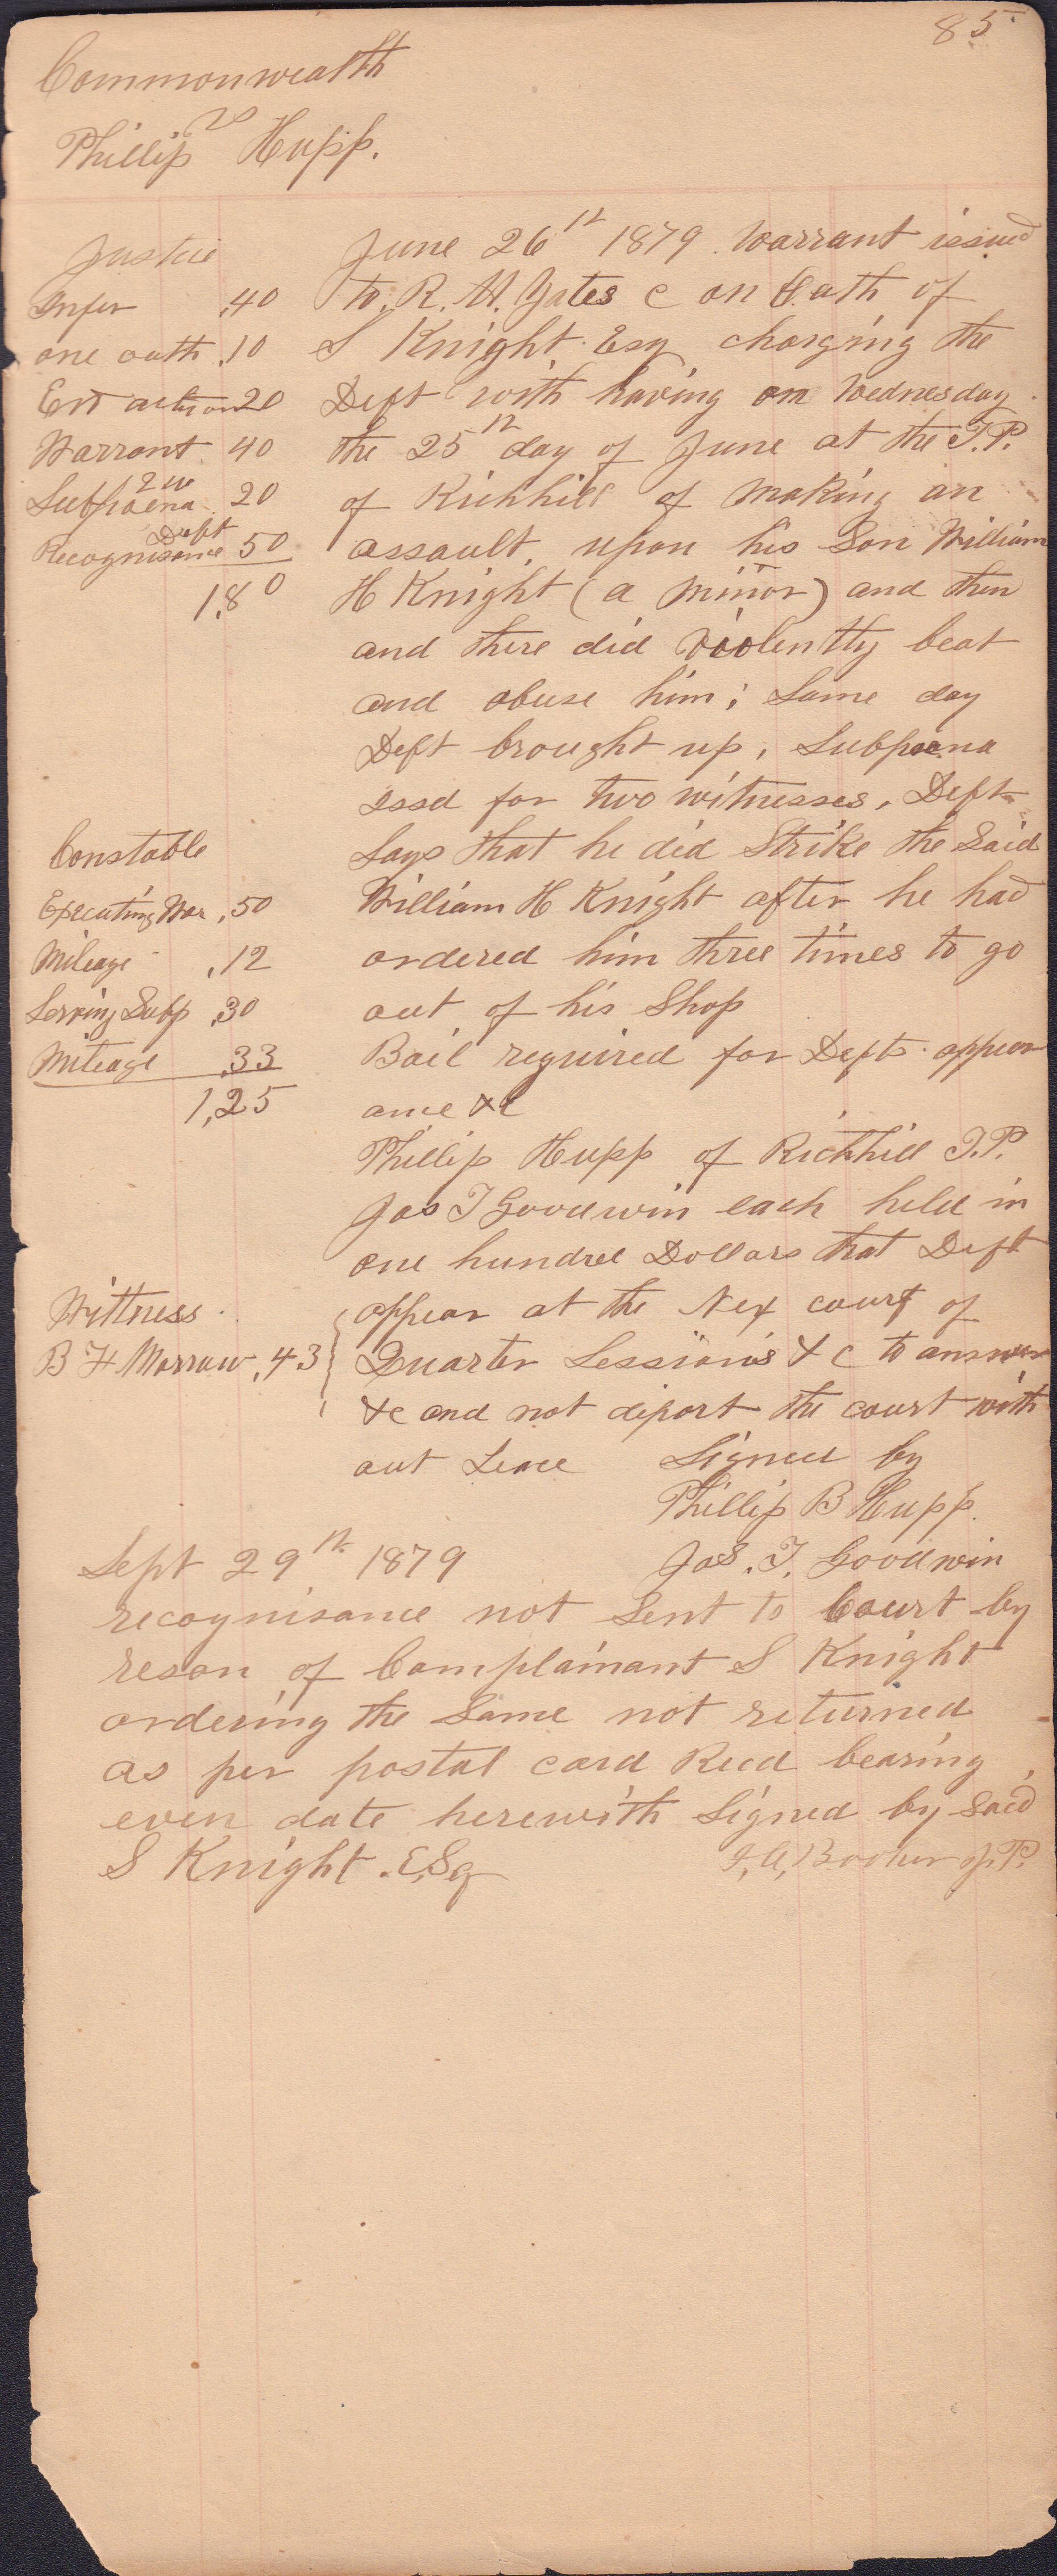 85
Commonwealth
vs
Phillip Hupp.
Justice
Infor .40
one oath .10
Ent action 20
Warrant 40
2 w
Subpoena 20
Deft
Recognisance 50
1.80
June 26th 1879. Warrant issued
to R. W. Yates C on Oath of
S Knight Esq charging the
Deft with having on Wednesday
the 25th day of June at the T.P.
of Richhill of making an
assault, upon his Son William
H Knight (a minor) and then
and there did violently beat
and abuse him; Same day
Deft brought up, Subpoena
issd for two witnesses, Deft
Says that he did Strike the Said
William H Knight after he had
ordered him three times to go
out of his Shop
Bail required for Defts appear
ance &c
Phillip Hupp of Richhill T.P.
Jas T Goodwin each held in
one hundred Dollars that Deft
appear at the Nex court of
Quarter Sessions &c to answer
&c and not depart the court with
out Leave Signed by
Phillip B Hupp.
Jas. T. Goodwin
Constable
Executing War .50
Mileage .12
Serving Subp .30
Mileage .33
1,25
Wittness
B F Morrow .43
Sept 29th 1879
recognisance not Sent to Court by
reson of Complainant S Knight
ordering the Same not returned
as per postal card Recd bearing
even date herewith Signed by Said
S Knight. Esq
J.P.